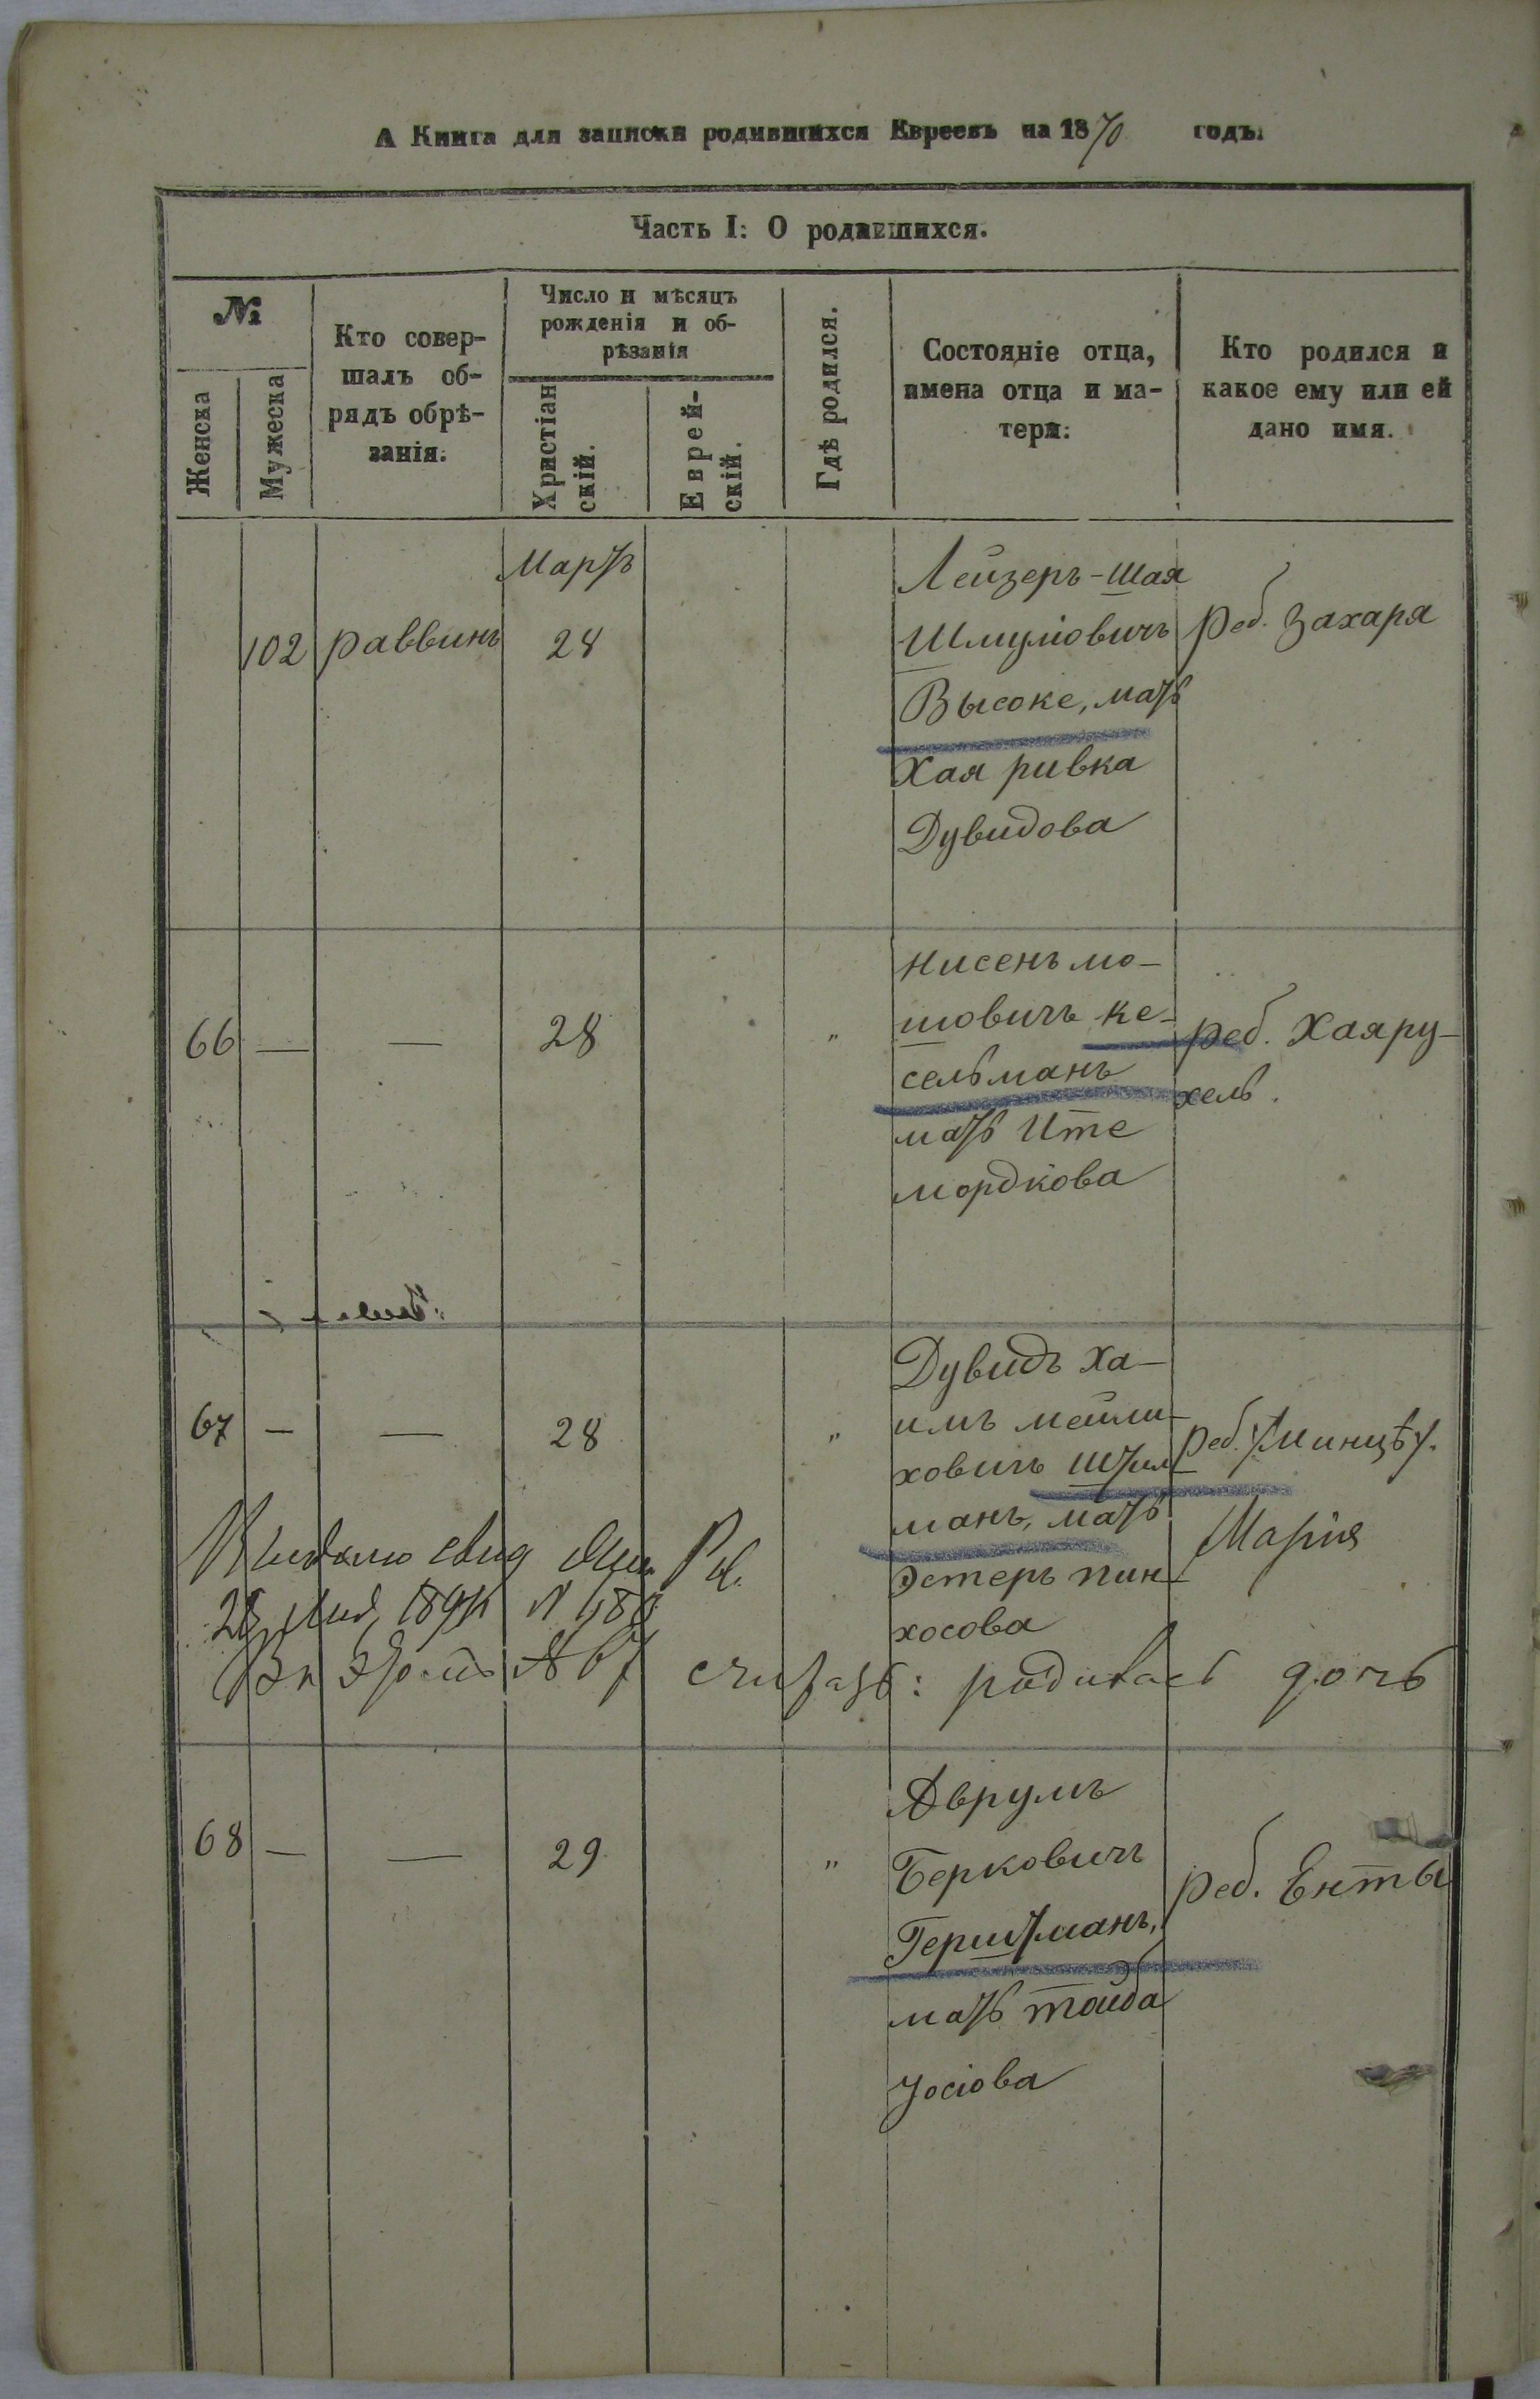 А Книга для записки родившихся Евреевъ на 1870 годъ.
Часть I: О родившихся.
№
Женска
Мужеска
Кто совер-
шалъ об-
рядъ обрѣ-
занія.
Число и мѣсяцъ
рожденія и об-
рѣзанія
Христіан
скій.
Еврей-
скій.
Гдѣ родился.
Состояніе отца,
имена отца и ма-
тери:
Кто родился и
какое ему или ей
дано имя.
Мартъ
102 раввинъ 28
Лейзеръ-Шая
Шмуліовичъ
Высоке, мать
Хая ривка
Дувидова
реб. Захаря
66 — — 28 „
Нисенъ мо-
шовичъ Ке-
сельманъ
мать Ите
мордкова
реб. Хаяру-
хель.
67 — — 28 „
Дувидъ Ха-
имъ мейли-
ховичъ Штил
манъ, мать
Эстеръ пин-
хосова
реб. Минцѣ
Марія
№ 67 считать: родилась дочь
68 — — 29 „
Аврумъ
Берковичъ
Герштманъ,
мать тойба
Іосіова
реб. Енты